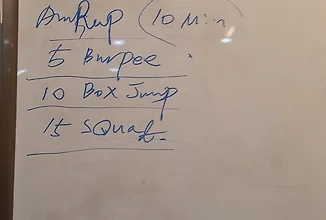 AmRap (10 Min)
5 Burpee
10 Box Jump
15 Squat.